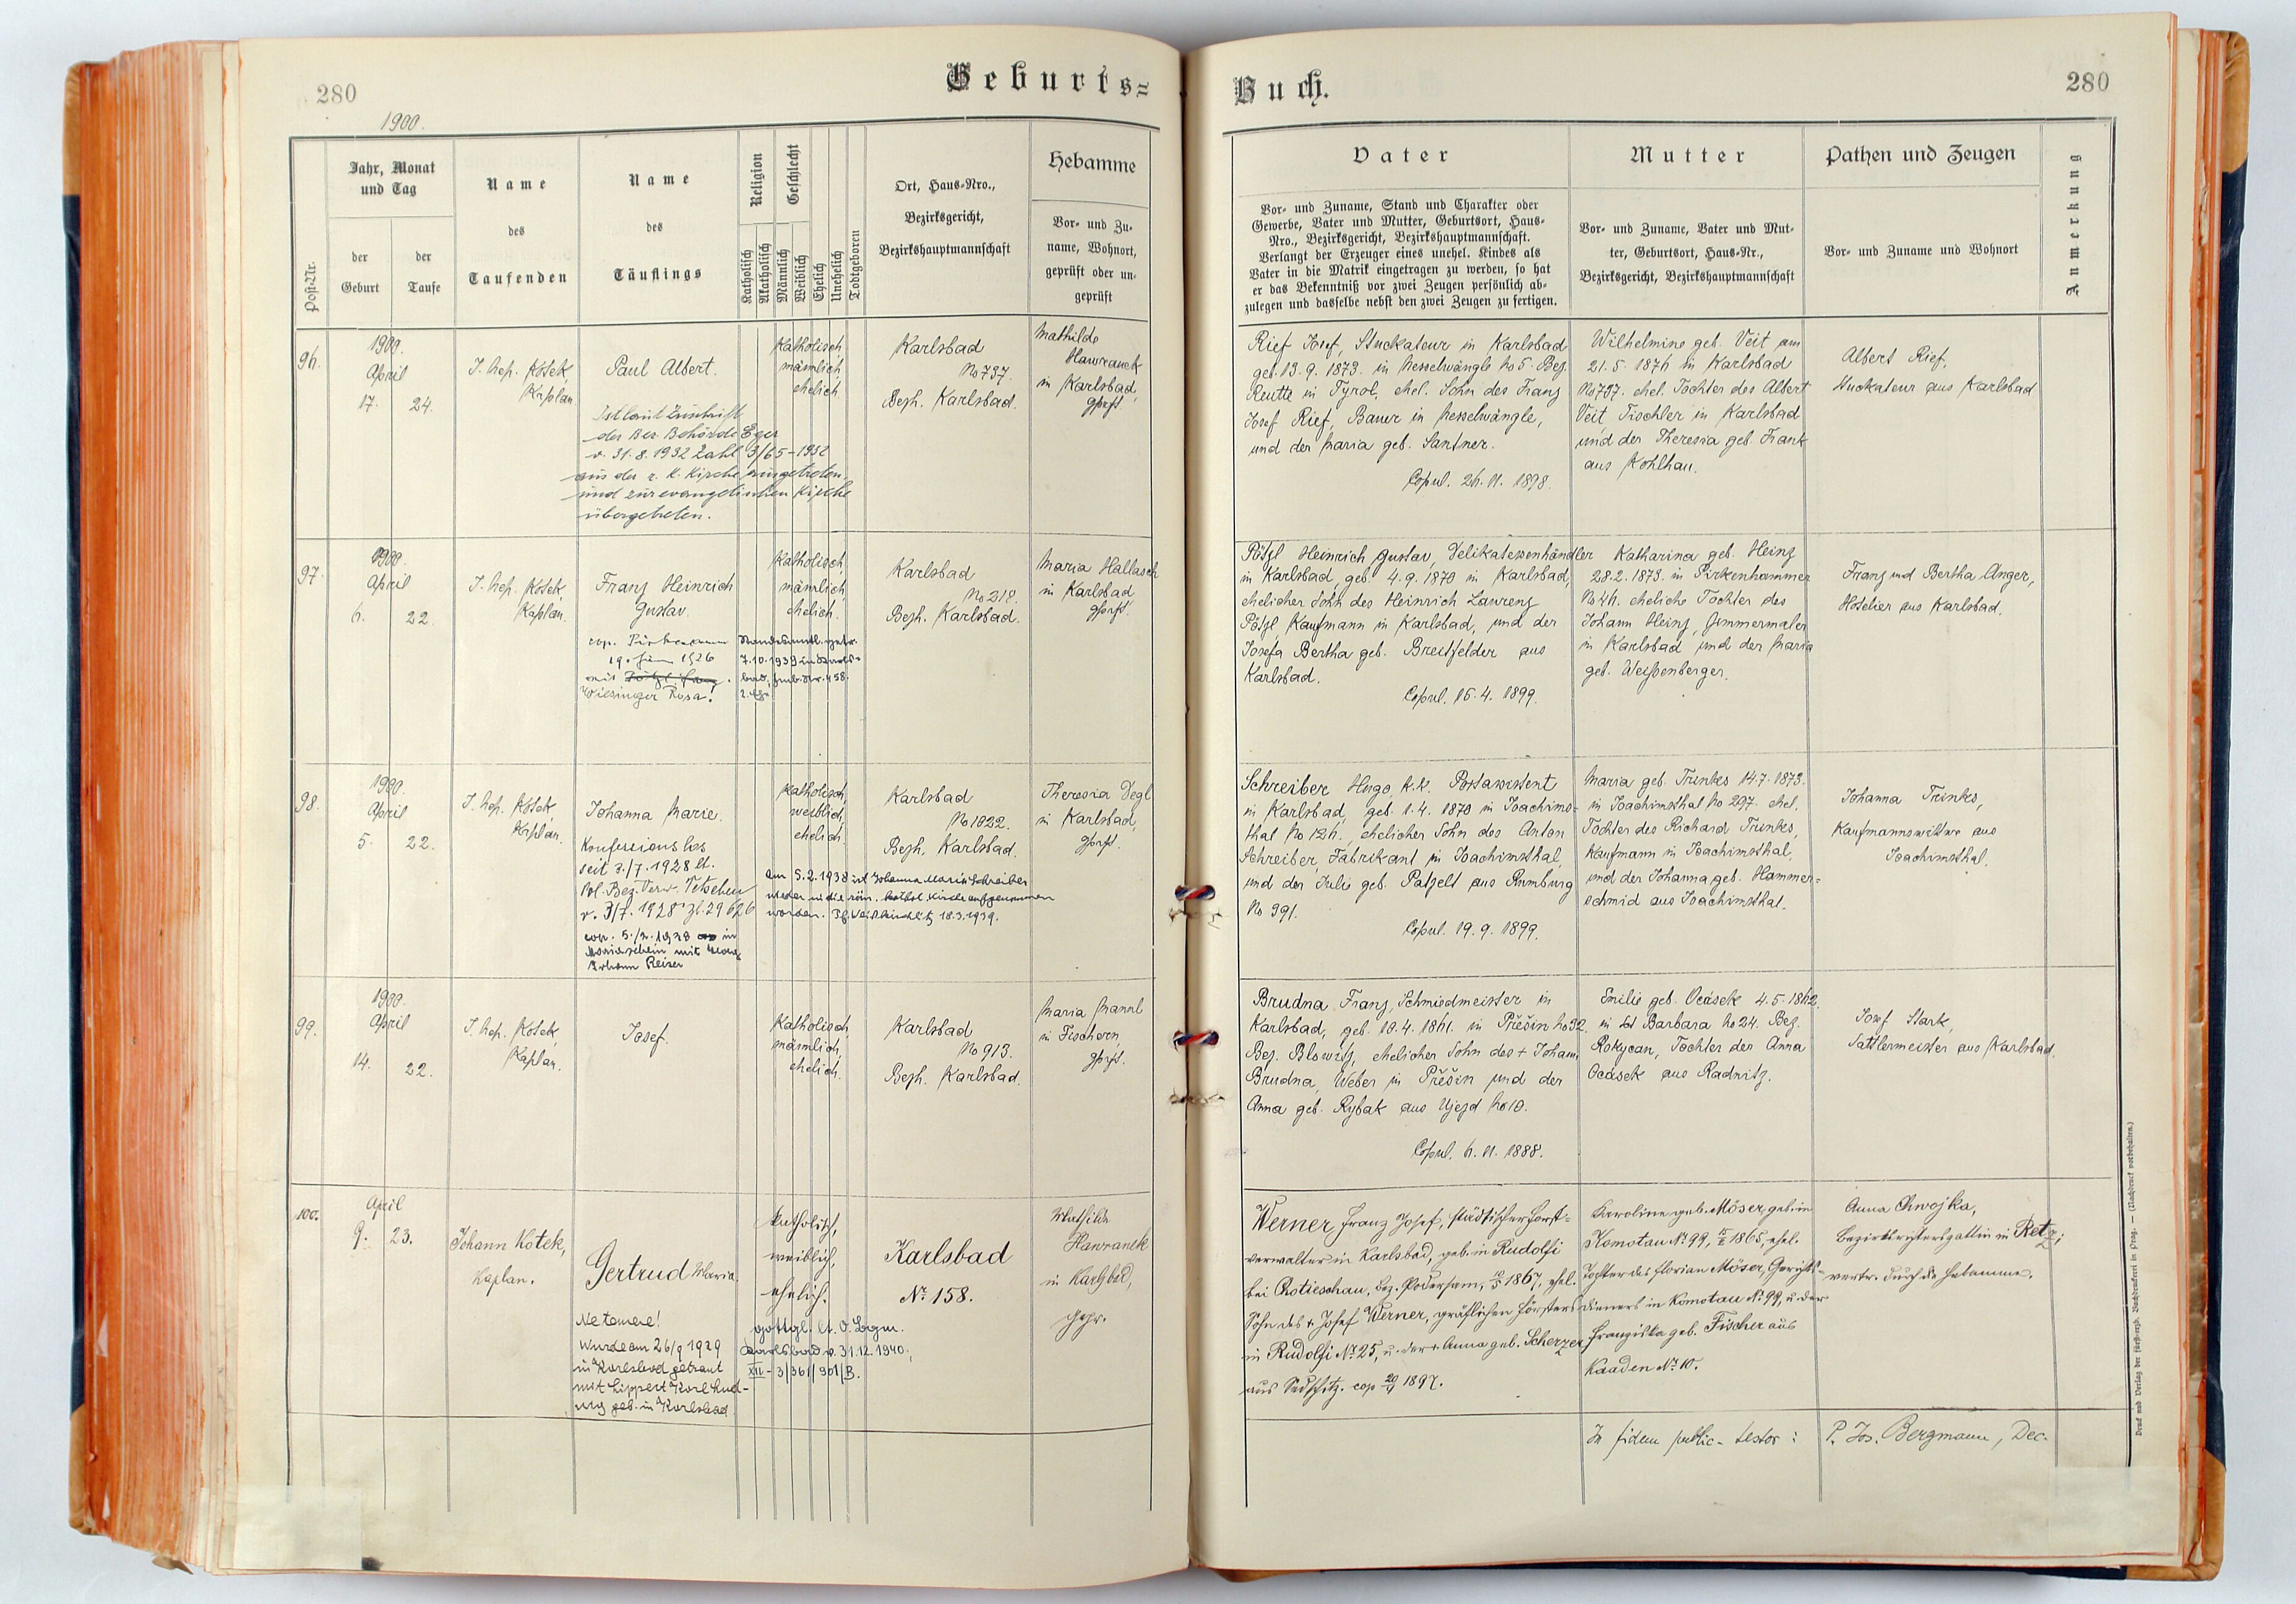 280
1900.
Geburts=
Post-Nr.
Jahr, Monat
und Tag
der
Geburt
der
Taufe
Name
des
Taufenden
Name
des
Täuflings
Religion
Katholisch
Akatholisch
Geschlecht
Männlich
Weiblich
Ehelich
Unehelich
Todtgeboren
Ort, Haus-Nro.,
Bezirksgericht,
Bezirkshauptmannschaft
Hebamme
Vor- und Zu-
name, Wohnort,
geprüft oder un-
geprüft
96.
1900.
April
17. 24.
J. Nep. Kotek
Kaplan
Paul Albert.
Ist laut Zuschrift
der Bez. Behörde Eger
v. 31.8.1932 Zahl 3/65-1932
aus der r. k. Kirche ausgetreten,
und zur evangelischen Kirche
übergetreten.
Katholisch,
männlich,
ehelich
Karlsbad
No 797.
Bezh. Karlsbad.
Mathilde
Hawranek
in Karlsbad,
gprft.
97.
1900.
April
6. 22.
J. Nep. Kotek,
Kaplan.
Franz Heinrich
Gustav.
cop.
19. 1926
mit
Wiesinger Rosa!
Standesamtl. getr.
7.10.1939 in Karls-
bad,
2. Ehe
Katholisch,
männlich,
ehelich.
Karlsbad
No 218.
Bezh. Karlsbad.
Maria Hallasch
in Karlsbad
gprft.
98.
1900.
April
5. 22.
J. Nep. Kotek,
Kaplan.
Johanna Marie.
Konfessionslos
seit 3/7. 1928 lt.
Pol. Bez. Verw. Tetschen
v. 3/7. 1928 Zl. 29626
cop. 5./2. 1938 in
Mariaschein mit
Johann Reiser
Katholisch,
weiblich,
ehelich.
am 5.2.1938 ist Johanna Marie Schreiber
wieder in die röm. kathol. Kirche aufgenommen
worden. 18.3.1939.
Karlsbad
No 1022.
Bezh. Karlsbad.
Theresia Degl
in Karlsbad,
gprft.
99.
1900.
April
14. 22.
J. Nep. Kotek,
Kaplan.
Josef.
Katholisch,
männlich,
ehelich.
Karlsbad
No 913.
Bezh. Karlsbad.
Maria Mannl
in Fischern,
gprft.
100.
April
9. 23.
Johann Kotek,
Kaplan.
Gertrud Maria.
Ne temere!
Wurde am 26/9 1929
in Karlsbad getraut
mit Lippert Karl Lud-
wig geb. in Karlsbad
katholisch,
weiblich,
ehelich.
gottgl. lt. O. Bgm.
Karlsbad v. 31.12.1940,
XII - 3/361/901/B.
Karlsbad
No. 158.
Mathilde
Hawranek
in Karlsbad,
gepr.
Buch.
280
Vater
Vor- und Zuname, Stand und Charakter oder
Gewerbe, Vater und Mutter, Geburtsort, Haus-
Nro., Bezirksgericht, Bezirkshauptmannschaft.
Verlangt der Erzeuger eines unehel. Kindes als
Vater in die Matrik eingetragen zu werden, so hat
er das Bekenntniß vor zwei Zeugen persönlich ab-
zulegen und dasselbe nebst den zwei Zeugen zu fertigen.
Mutter
Vor- und Zuname, Vater und Mut-
ter, Geburtsort, Haus-Nr.,
Bezirksgericht, Bezirkshauptmannschaft
Pathen und Zeugen
Vor- und Zuname und Wohnort
Anmerkung
Rief Josef, Stuckateur in Karlsbad
geb. 13.9.1873. in Nesselwängle No 5. Bez.
Reutte in Tyrol, ehel. Sohn des Franz
Josef Rief, Bauer in Nesselwängle,
und der Maria geb. Santner.
Copul. 26.11.1898.
Wilhelmine geb. Veit am
21.5.1876 in Karlsbad
No 797. ehel. Tochter des Albert
Veit, Tischler in Karlsbad
und der Theresia geb. Frank
aus Kohlhau.
Albert Rief,
Stuckateur aus Karlsbad
Pötzl Heinrich Gustav, Delikatessenhändler
in Karlsbad, geb. 4.9.1870 in Karlsbad,
ehelicher Sohn des Heinrich Laurenz
Pötzl Kaufmann in Karlsbad, und der
Josefa Bertha geb. Breitfelder aus
Karlsbad.
Copul. 16.4.1899.
Katharina geb. Heinz
28.2.1873. in Pirkenhammer
No 46. eheliche Tochter des
Johann Heinz, Zimmermaler
in Karlsbad und der Maria
geb. Weißenberger.
Franz und Bertha Anger,
Hotelier aus Karlsbad.
Schreiber Hugo, k.k. Postassistent
in Karlsbad, geb. 1.4.1870 in Joachims-
thal No 126., ehelicher Sohn des Anton
Schreiber, Fabrikant in Joachimsthal,
und der Julie geb. Patzelt aus Rumburg
No 991.
Copul. 19.9.1899.
Maria geb. Trinkes 14.7.1873.
in Joachimsthal No 297. ehel.
Tochter des Richard Trinkes,
Kaufmann in Joachimsthal,
und der Johanna geb. Hammer=
schmid aus Joachimsthal.
Johanna Trinkes,
Kaufmannswittwe aus
Joachimsthal.
Brudna Franz, Schmiedmeister in
Karlsbad, geb. 10.4.1861. in Přešin No 32.
Bez. Blowitz, ehelicher Sohn des + Johann
Brudna Weber in Přešin und der
Anna geb. Rybak aus Ujezd No 10.
Copul. 6.11.1888.
Emilie geb. Ocásek 4.5.1862.
in Sct Barbara No 24. Bez.
Rokycan, Tochter der Anna
Ocásek aus Radnitz.
Josef Stark,
Sattlermeister aus Karlsbad.
Werner Franz Josef, städtischer Forst-
verwalter in Karlsbad, geb. in Rudolfi
bei Chotieschau, Bez. Podersam, 1867, ehel.
Sohn des + Josef Werner, gräflichen Försters
in Rudolfi No. 25, u. der + Anna geb. Scherzer
aus Seltschitz. cop 20/4 1897.
Karoline geb. Möser, geb. in
Komotau No. 99, 1865, ehel.
Tochter des Florian Möser, Gerichts-
dieners in Komotau No. 99, u. der
Franziska geb. Fischer aus
Kaaden No. 10.
Anna Chwojka,
Bezirksrichtersgattin in Retz;
vertr. durch die Hebamme.
In fidem public- testor:
P. Jos. Bergmann, Dec.
Druck und Verlag der fürst-erzb. Buchdruckerei in Prag. — (Nachdruck vorbehalten.)